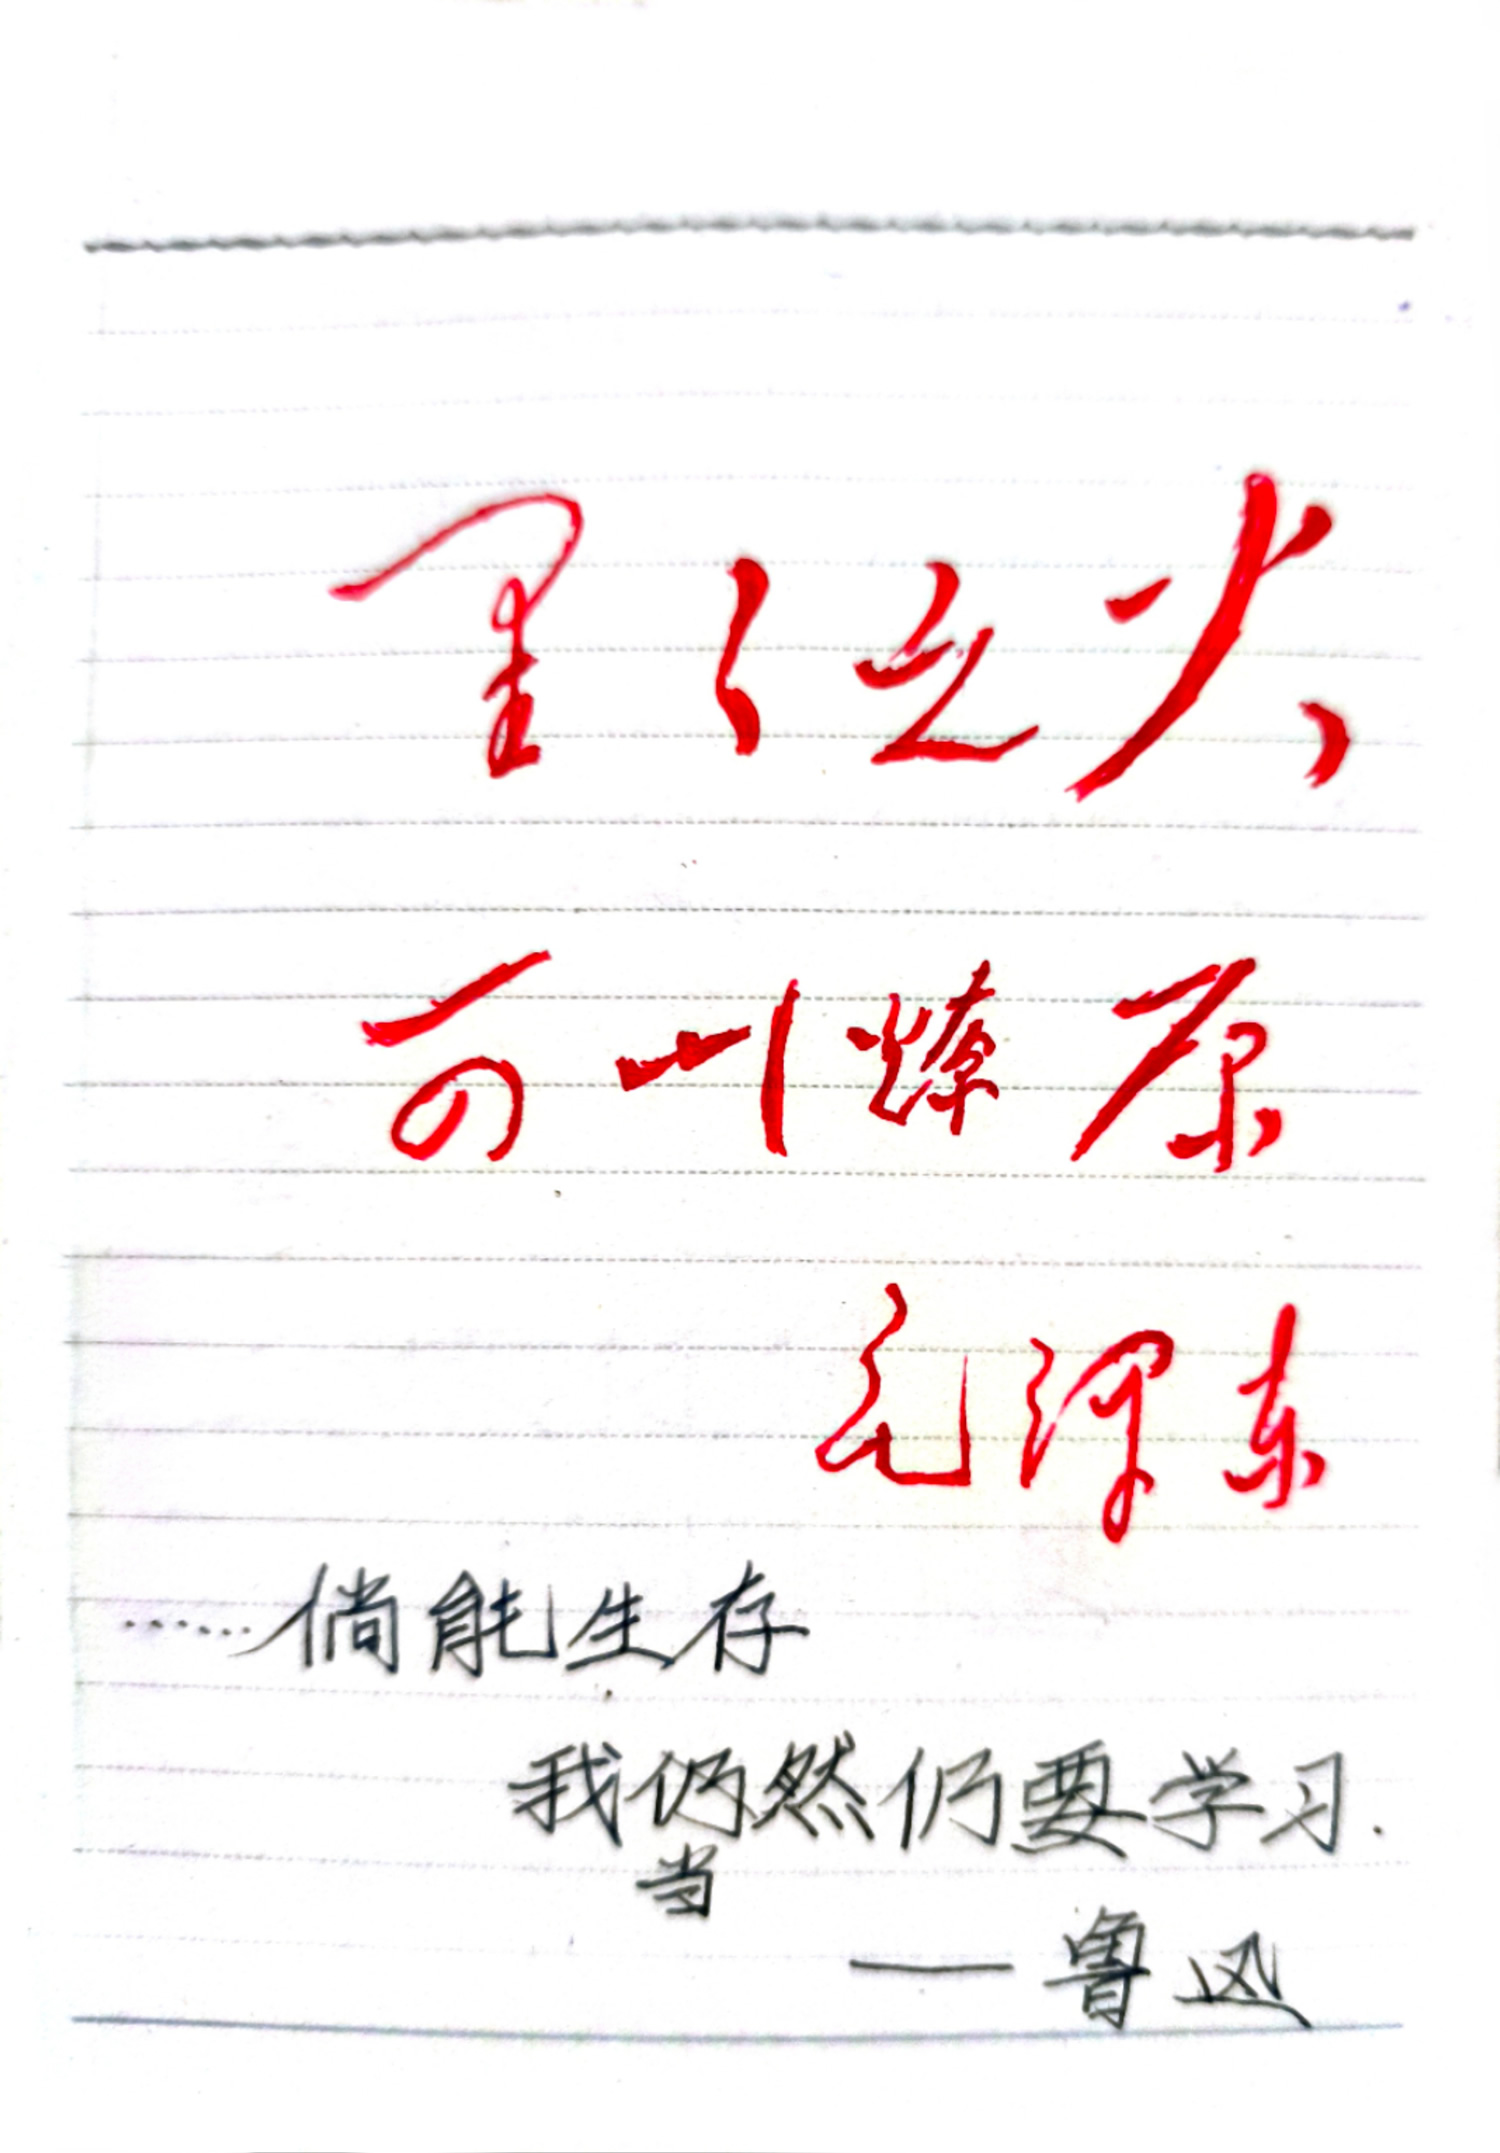 星星之火
可以燎原
毛泽东
……倘能生存
我仍然仍要学习.
当
——鲁迅